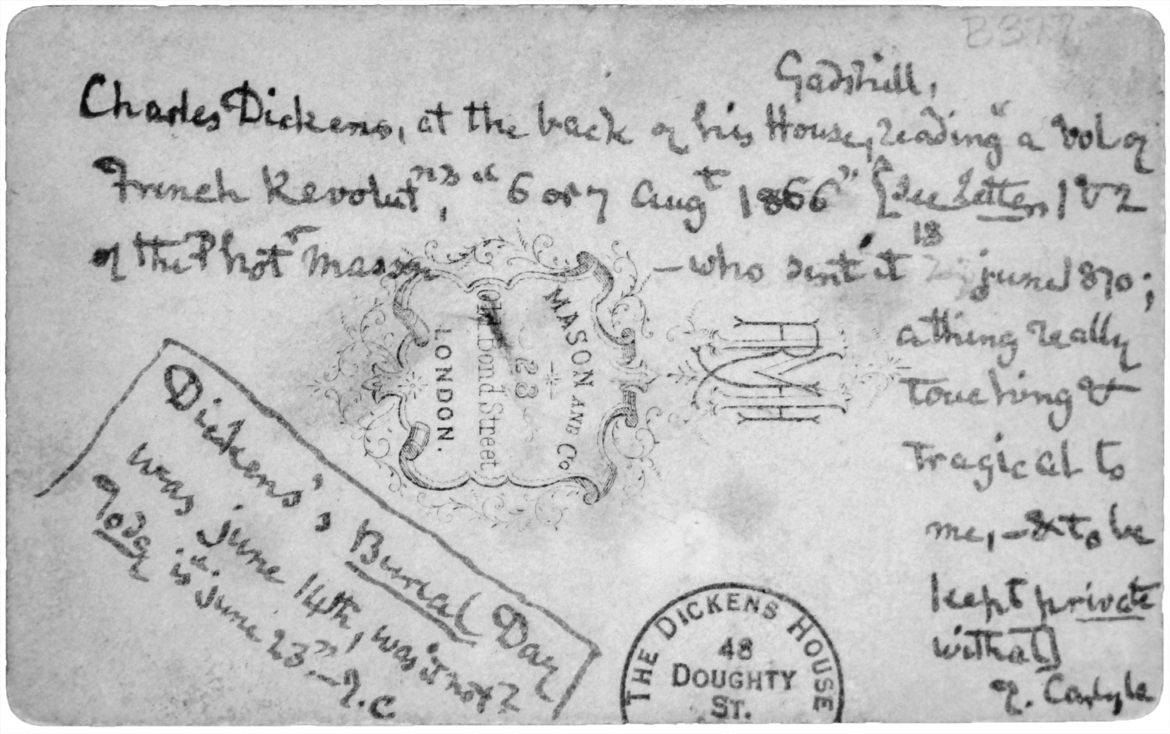 B377
Gadshill,
Charles Dickens, at the back of his House, reading "a Vol of
French Revolutn", "6 or 7 Augt 1866" [See Letters 1 & 2
of the Photr Mason — who sent it 18 june 1870;
a thing really
touching &
tragical to
me, — & to be
kept private
withal]
T. Carlyle
MASON AND Co
28
Old Bond Street
LONDON.
RMH
Dickens's Burial Day
was june 14th, was it not?
Today is "june 23d" — T.C
THE DICKENS HOUSE
48
DOUGHTY
ST.